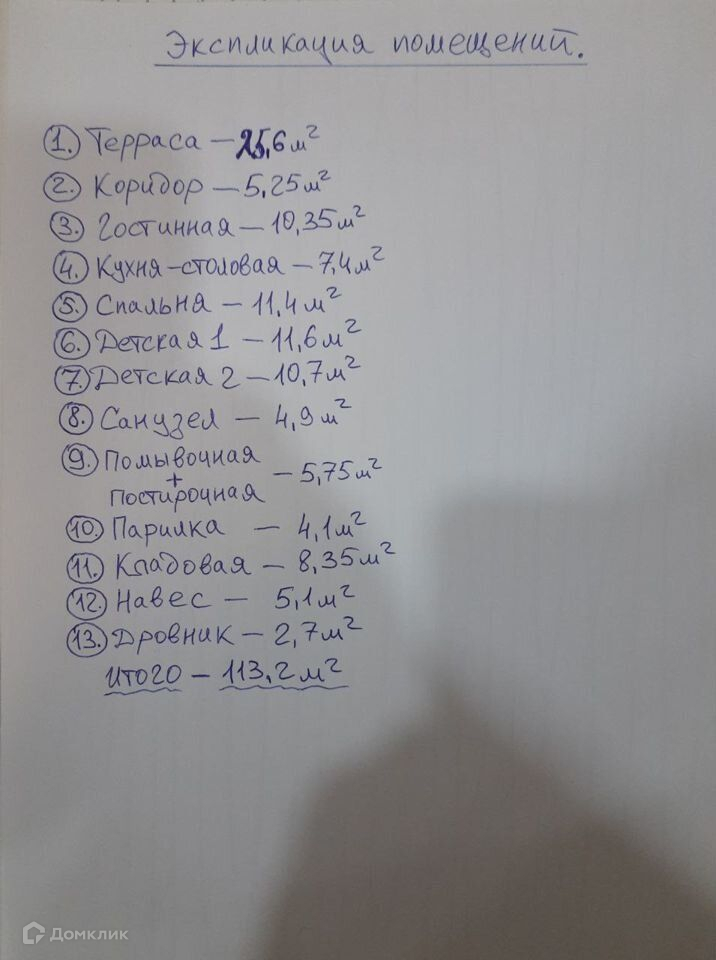 Экспликация помещений.
1. Терраса – 25,6 м²
2. Коридор – 5,25 м²
3. Гостинная – 10,35 м²
4. Кухня-столовая – 7,4 м²
5. Спальня – 11,4 м²
6. Детская 1 – 11,6 м²
7. Детская 2 – 10,7 м²
8. Санузел – 4,9 м²
9. Помывочная
+
постирочная – 5,75 м²
10. Парилка – 4,1 м²
11. Кладовая – 8,35 м²
12. Навес – 5,1 м²
13. Дровник – 2,7 м²
Итого – 113,2 м²
Домклик